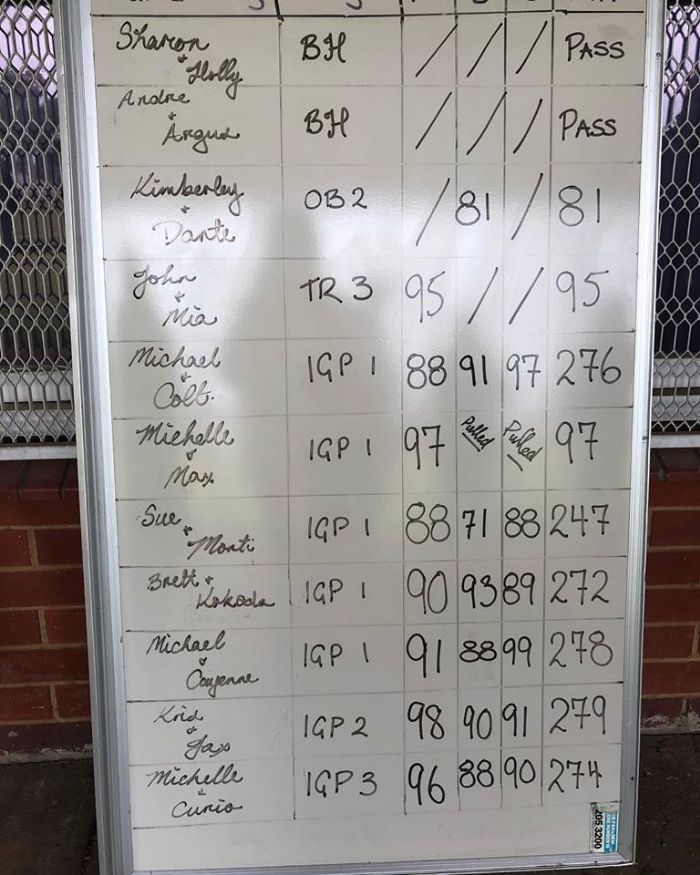 Sharon
+ Holly BH / / / PASS
Andre
+ Argus BH / / / PASS
Kimberley
+ Dante OB2 / 81 / 81
John
+ Mia TR 3 95 / / 95
Michael
+ Colt. IGP 1 88 91 97 276
Michelle
+ Max IGP 1 97 Pulled Pulled 97
Sue
+ Monti IGP 1 88 71 88 247
Brett +
Kokoda IGP 1 90 93 89 272
Michael
+ Cayenne IGP 1 91 88 99 278
+ Jax IGP 2 98 90 91 279
Michelle
+ Curio IGP 3 96 88 90 274
205 3200